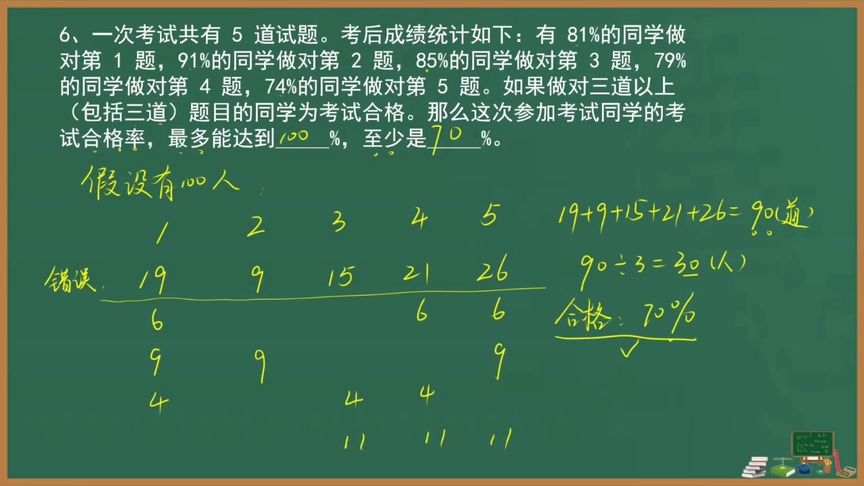 6、一次考试共有 5 道试题。考后成绩统计如下：有 81%的同学做
对第 1 题，91%的同学做对第 2 题，85%的同学做对第 3 题，79%
的同学做对第 4 题，74%的同学做对第 5 题。如果做对三道以上
（包括三道）题目的同学为考试合格。那么这次参加考试同学的考
试合格率，最多能达到100%，至少是70%。
假设有100人
1 2 3 4 5
错误 19 9 15 21 26
6 6 6
9 9 9
4 4 4
11 11 11
19+9+15+21+26=90(道)
90÷3=30(人)
合格：70%